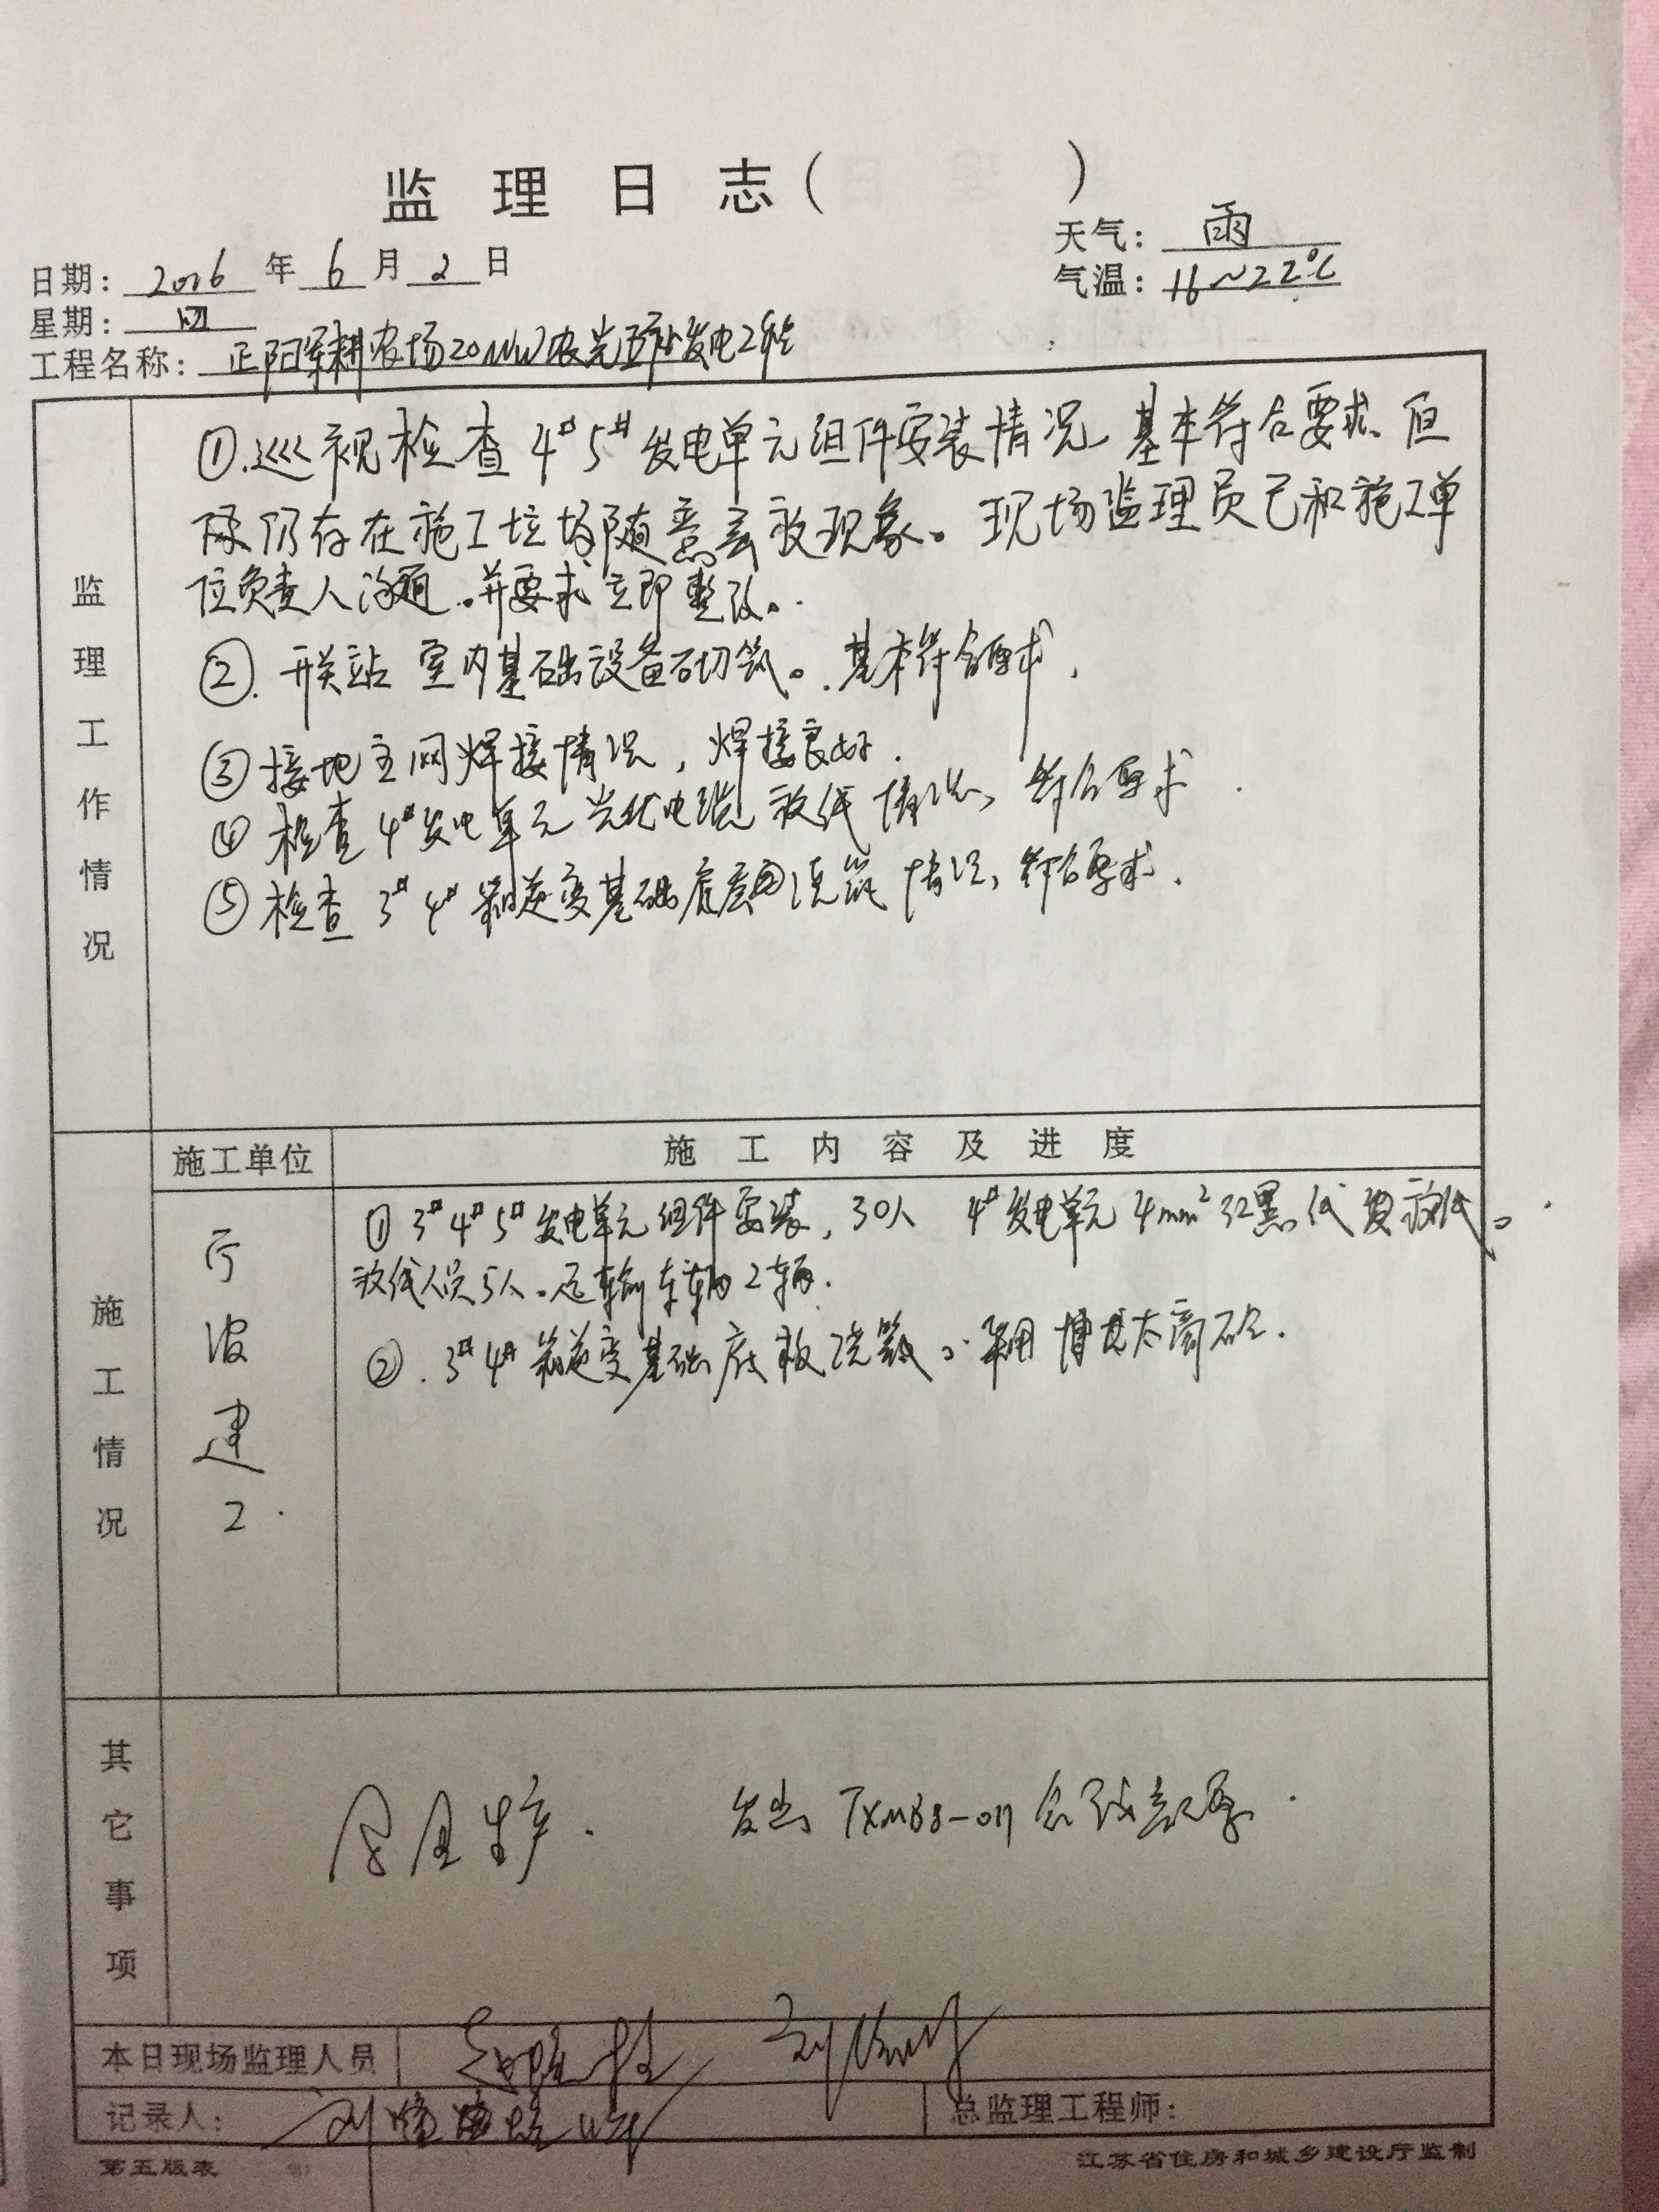 监理日志（ ）
天气：雨
日期：2016年6月2日
气温：16～22℃
星期：四
工程名称：正阳军耕农场20MW农光互补发电工程
监理工作情况
①.巡视检查4#5#发电单元组件安装情况基本符合要求、但
仍存在施工垃圾随意丢放现象。现场监理员已和施工单
位负责人沟通。并要求立即整改。
②.开关站室内基础设备砌筑。基本符合要求.
③接地主网焊接情况，焊接良好.
④检查4#发电单元光伏电缆放线情况、符合要求.
⑤检查3#4#箱逆变基础底层浇筑情况、符合要求.
施工单位 施工内容及进度
施工情况
宁波建工.
①3#4#5#发电单元组件安装，30人 4#发电单元4mm²红黑放线。
放线人员5人。运输车辆2辆.
②.3#4#箱逆变基础底板浇筑。采用商砼.
其它事项
安全生产. 发出TXMB8-011会议纪要.
本日现场监理人员
记录人：刘 总监理工程师：
第五版表 江苏省住房和城乡建设厅监制